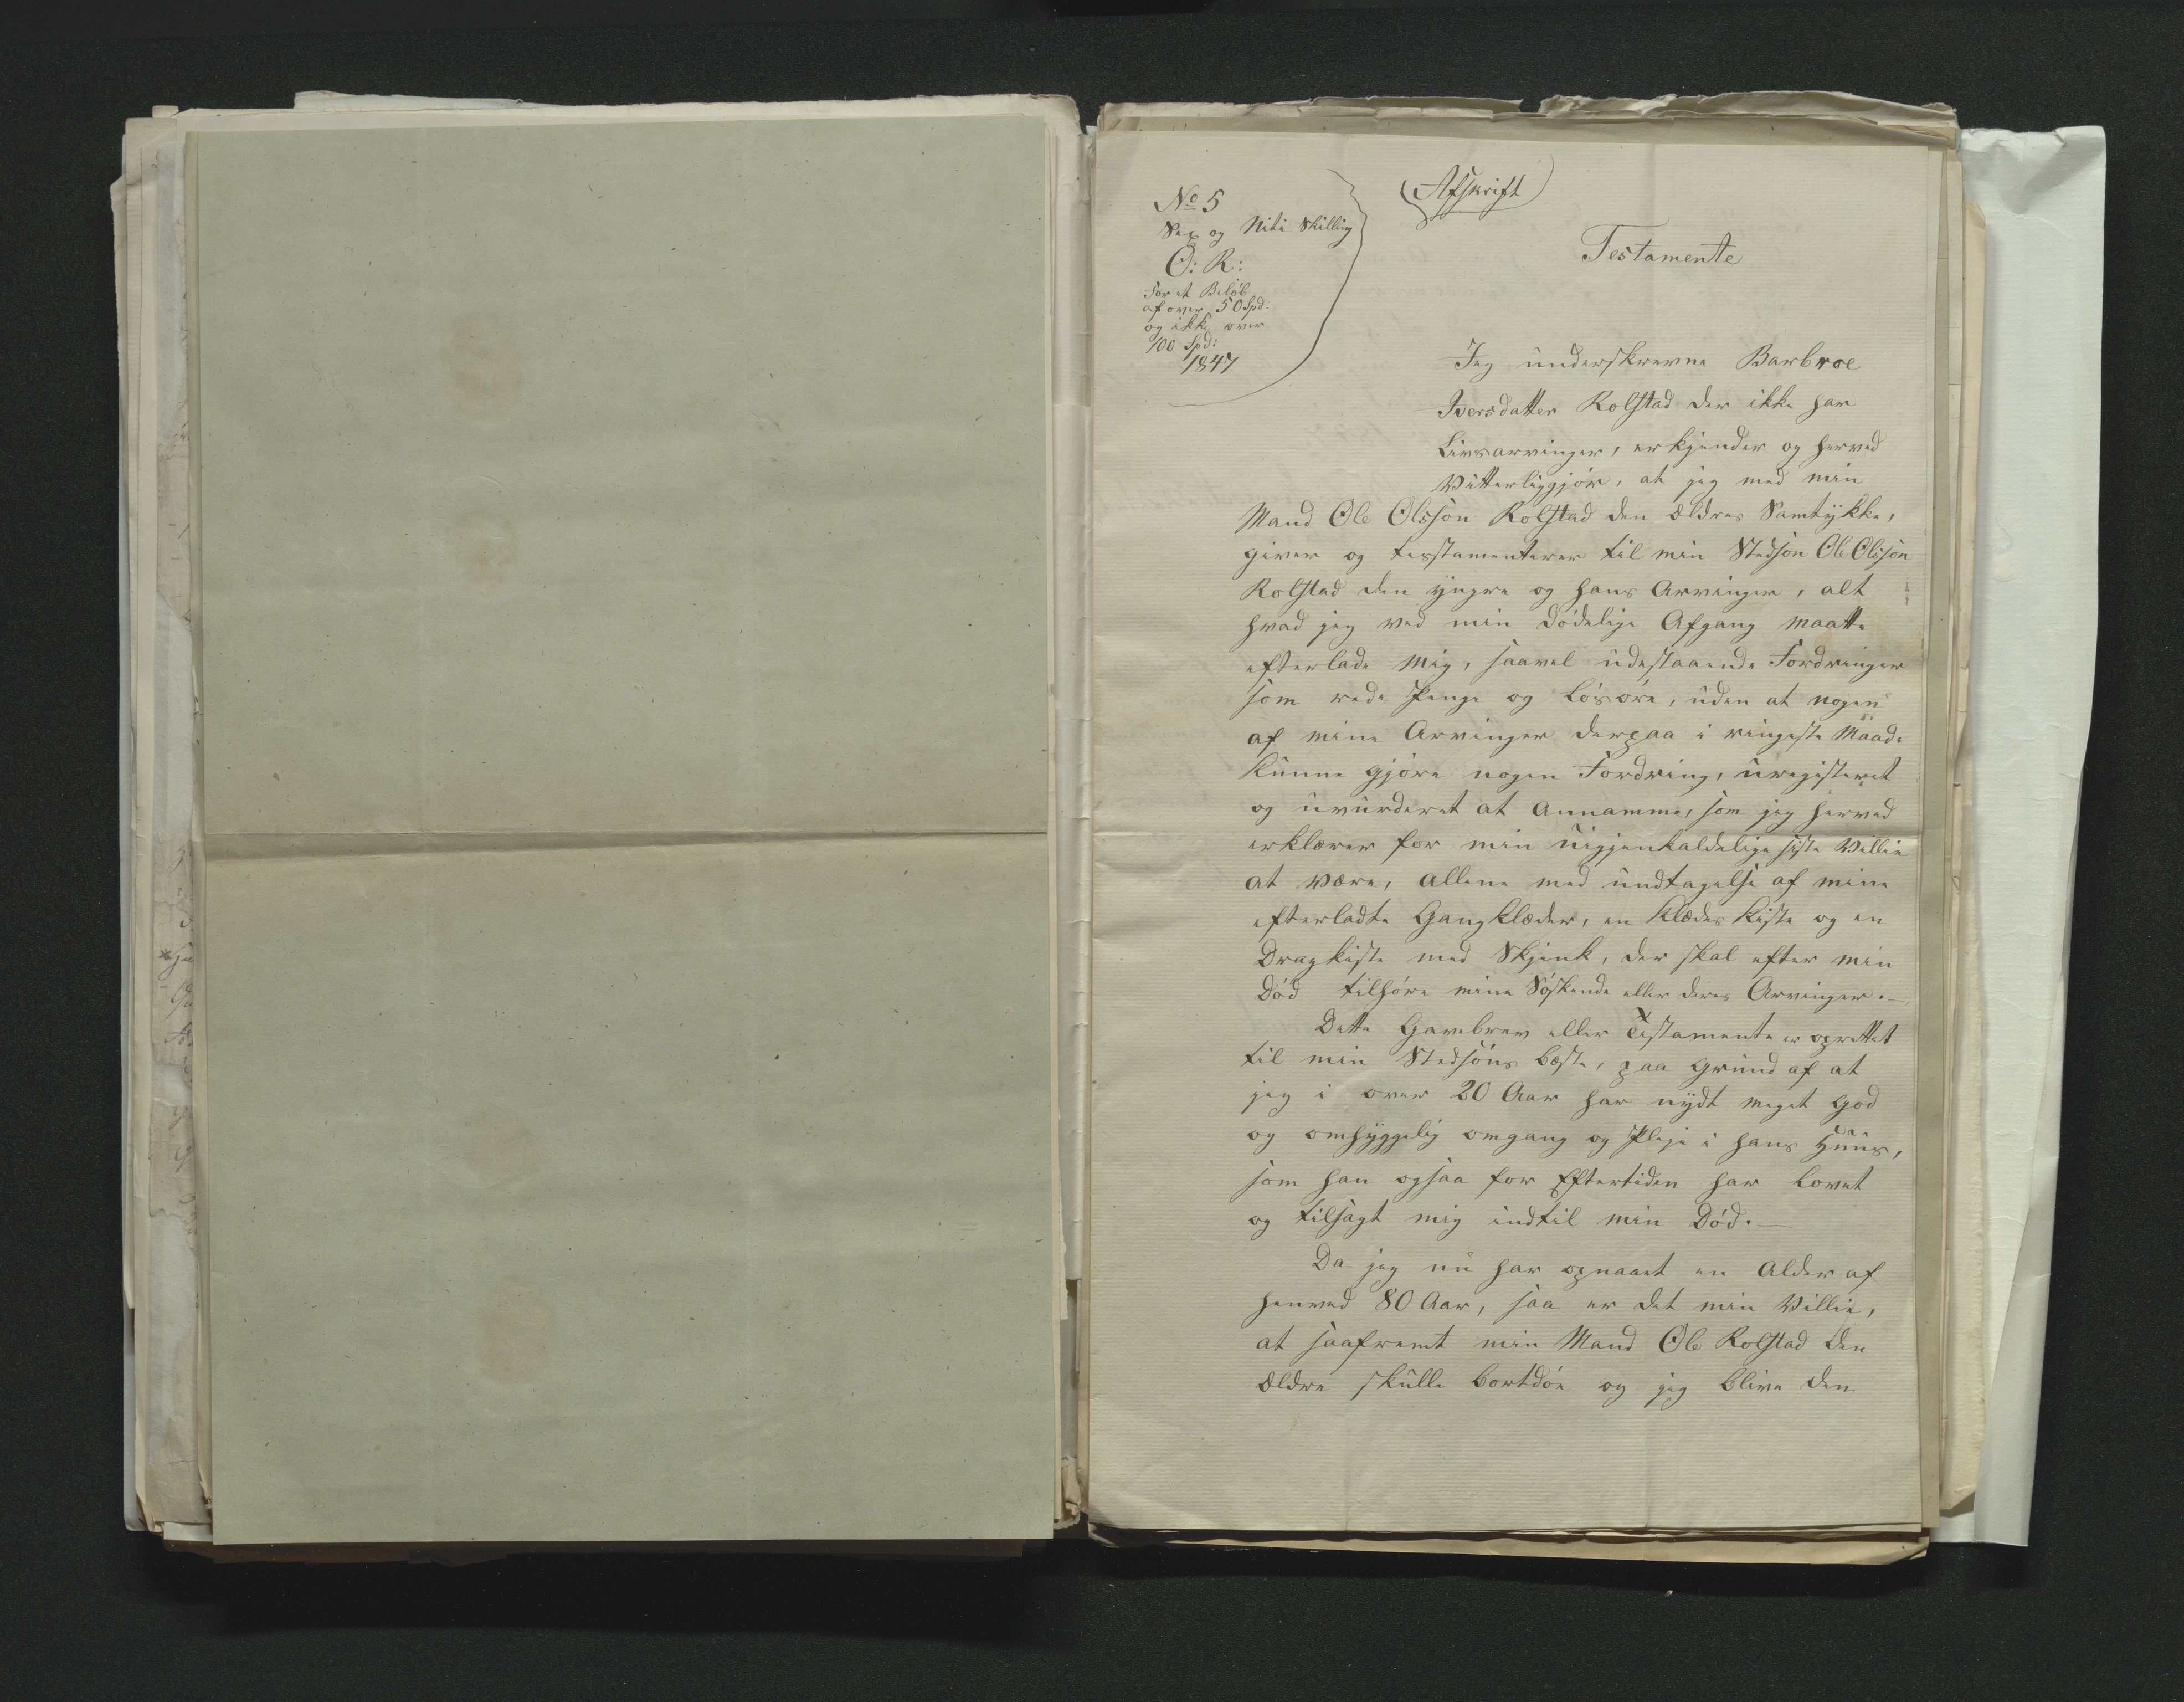 No 5
Sex og Niti Skilling
O: R:
For et Beløb
af over 50 Spd:
og ikke over
100 Spd:
1847
(Afskrift)
Testamente
Jeg underskrevne Barbroe
Iversdatter Rolstad der ikke har
Livsarvinger, erkjender og herved
Vitterliggjör, at jeg med min
Mand Ole Olsson Rolstad den ældres Samtykke,
giver og testamenterer til min Stedsön Ole Olsson
Rolstad den yngre og hans Arvinger, alt
hvad jeg ved min dödelige Afgang maatte
efterlade mig, saavel udestaaende Fordringer
som rede Penge og Lösöre, uden at nogen
af mine Arvinger derpaa i ringeste Maade
kunne gjöre nogen Fordring, uregisteret
og uvurderet at annamme, som jeg herved
erklærer for min uigjenkaldelige siste Villie
at være, allene med undtagelse af mine
efterladte Gangklæder, en Klædes Kiste og en
Dragkiste med Skjenk, der skal efter min
Död tilhöre mine Söskende eller deres Arvinger.—
Dette Gavebrev eller Testamente er oprettet
til min Stedsöns beste, paa grund af at
jeg i over 20 Aar har nydt meget god
og omhyggelig omgang og Pleje i hans Huus,
som han ogsaa for Eftertiden har lovet
og tilsagt mig indtil min Död.—
Da jeg nu har opnaaet en Alder af
henved 80 Aar, saa er det min Villie,
at saafremt min Mand Ole Rolstad den
ældre skulle bortdöe og jeg blive den